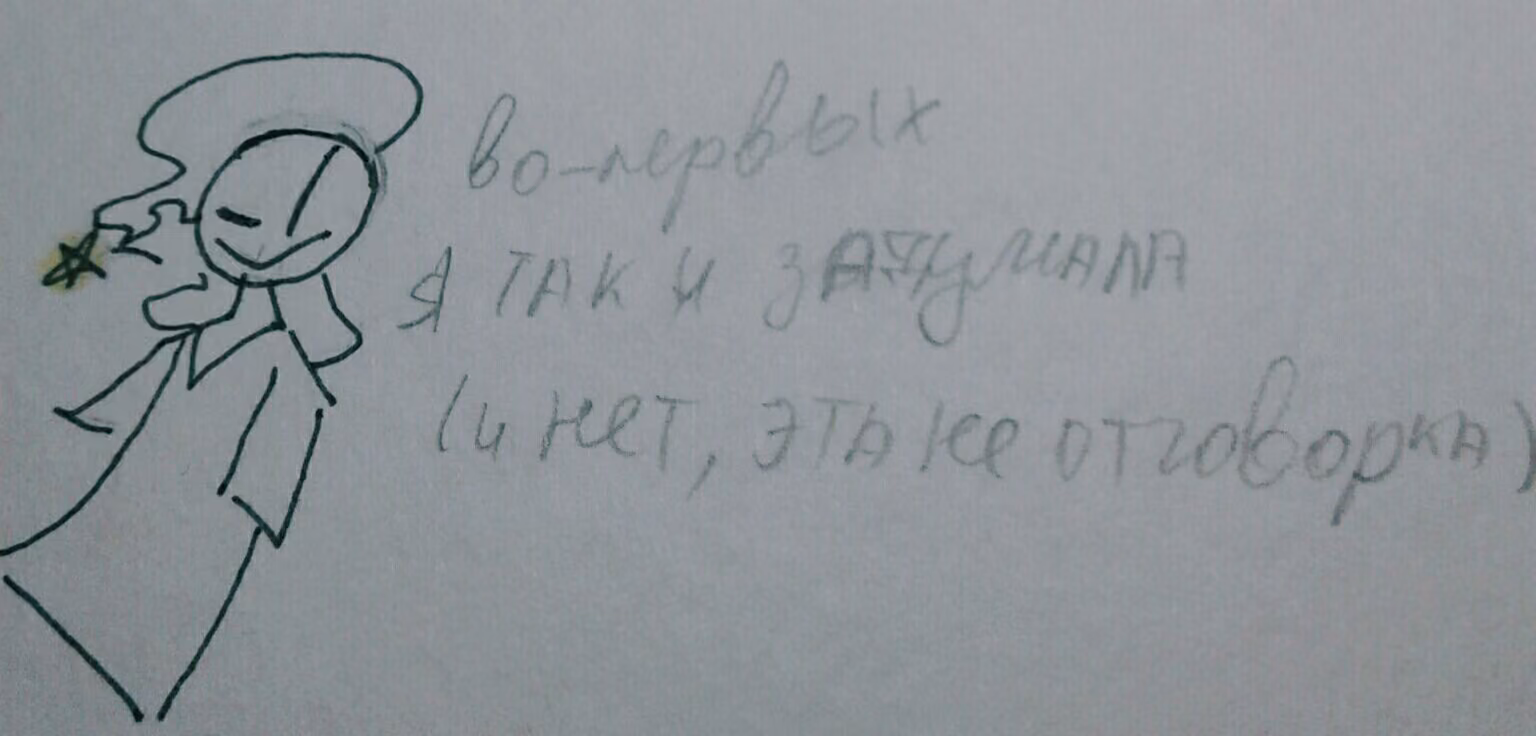 во-первых
я так и задумала
(и нет, эта не отговорка)